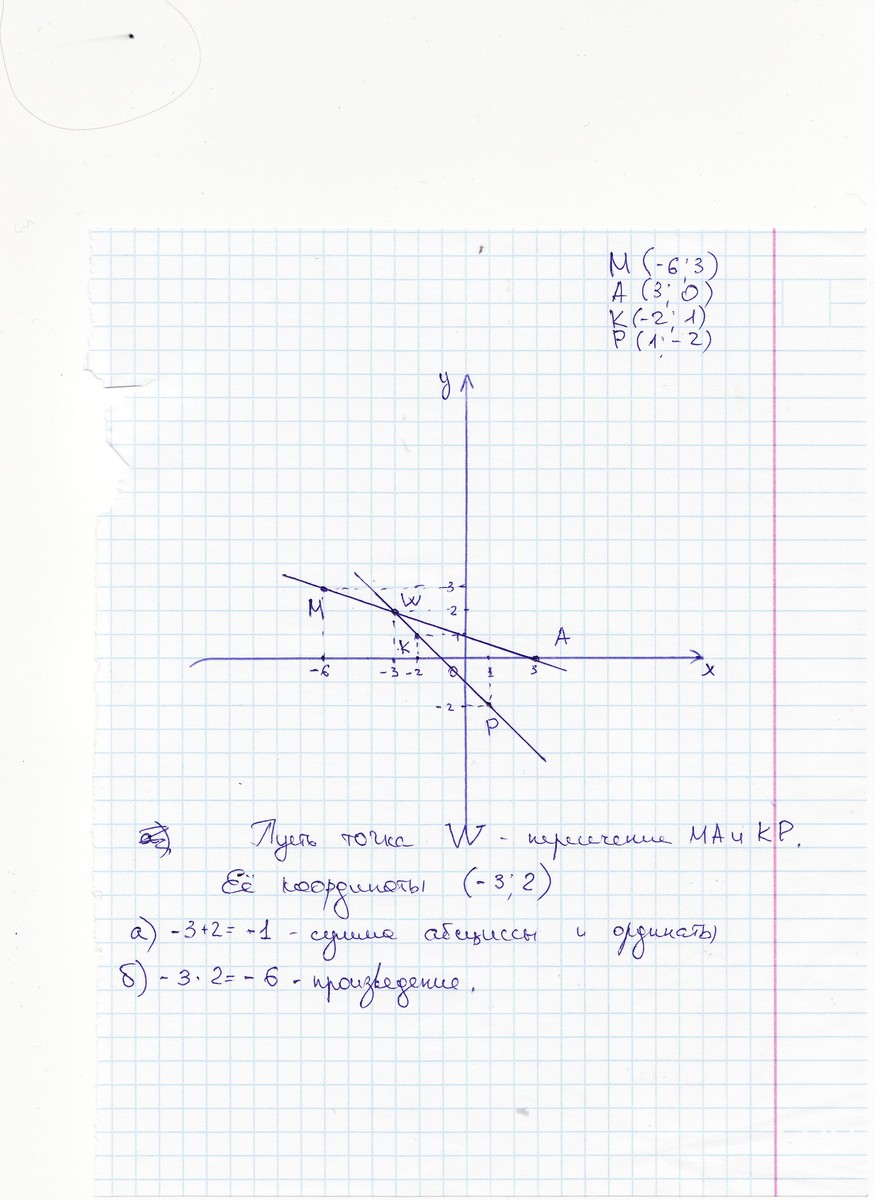 M (-6; 3)
A (3; 0)
K (-2; 1)
P (1; -2)
y
3
M
W
2
K
1
A
-6
-3
-2
0
1
3
x
-2
P
Пусть точка W - пересечение MA и KP.
Её координаты (-3; 2)
а) -3+2= -1 - сумма абсциссы и ординаты
б) -3·2= -6 - произведение.